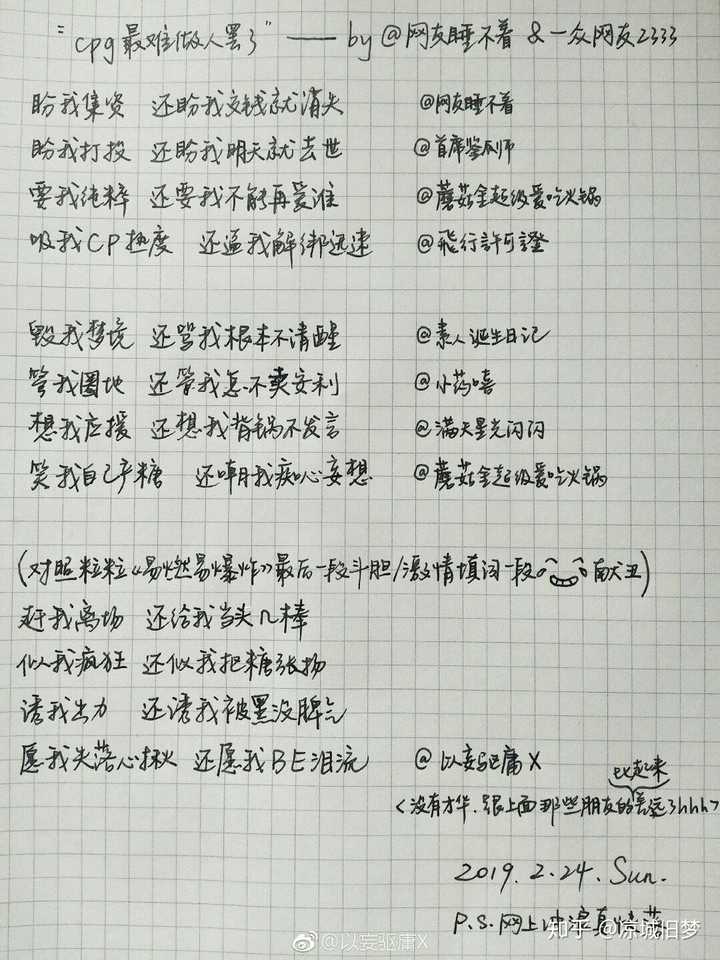 "cpg最难做人罢了" —— by @网友睡不着 & 一众网友2333
盼我集资 还盼我交钱就消失 @网友睡不着
盼我打投 还盼我明天就去世 @首席鉴瓜师
要我纯粹 还要我不能再爱谁 @蘑菇全超级爱吃火锅
吸我CP热度 还逼我解绑迅速 @飛行許可證
毁我梦境 还骂我根本不清醒 @素人诞生日记
管我圈地 还管我怎不卖安利 @小药嘻
想我应援 还想我背锅不发言 @满天星光闪闪
笑我自己产糖 还嘲我痴心妄想 @蘑菇全超级爱吃火锅
(对照粒粒《易燃易爆炸》最后一段斗胆/激情填词一段 献丑)
赶我离场 还给我当头几棒
似我疯狂 还似我把糖张扬
诱我出力 还诱我被黑没脾气
愿我失落心揪 还愿我BE泪流 @以妄驱庸X
比起来
<没有才华,跟上面那些朋友的差远了hhh>
2019.2.24.Sun.
P.S.网上冲浪真
知乎 @凉城旧梦
@以妄驱庸X